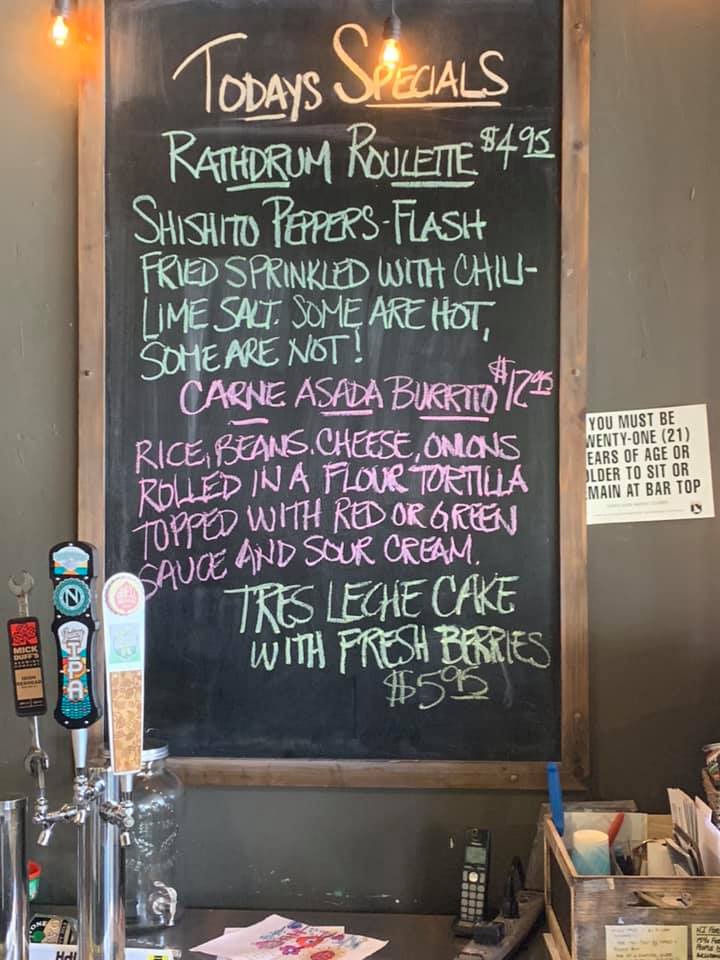 TODAYS SPECIALS
RATHDRUM ROULETTE $4.95
SHISHITO PEPPERS-FLASH
FRIED SPRINKLED WITH CHILI-
LIME SALT. SOME ARE HOT,
SOME ARE NOT!
CARNE ASADA BURRITO $12.95
RICE, BEANS, CHEESE, ONIONS
ROLLED IN A FLOUR TORTILLA
TOPPED WITH RED OR GREEN
SAUCE AND SOUR CREAM.
TRES LECHE CAKE
WITH FRESH BERRIES
$5.95
YOU MUST BE
WENTY-ONE (21)
EARS OF AGE OR
OLDER TO SIT OR
MAIN AT BAR TOP
MICK
DUFF'S
N
IPA